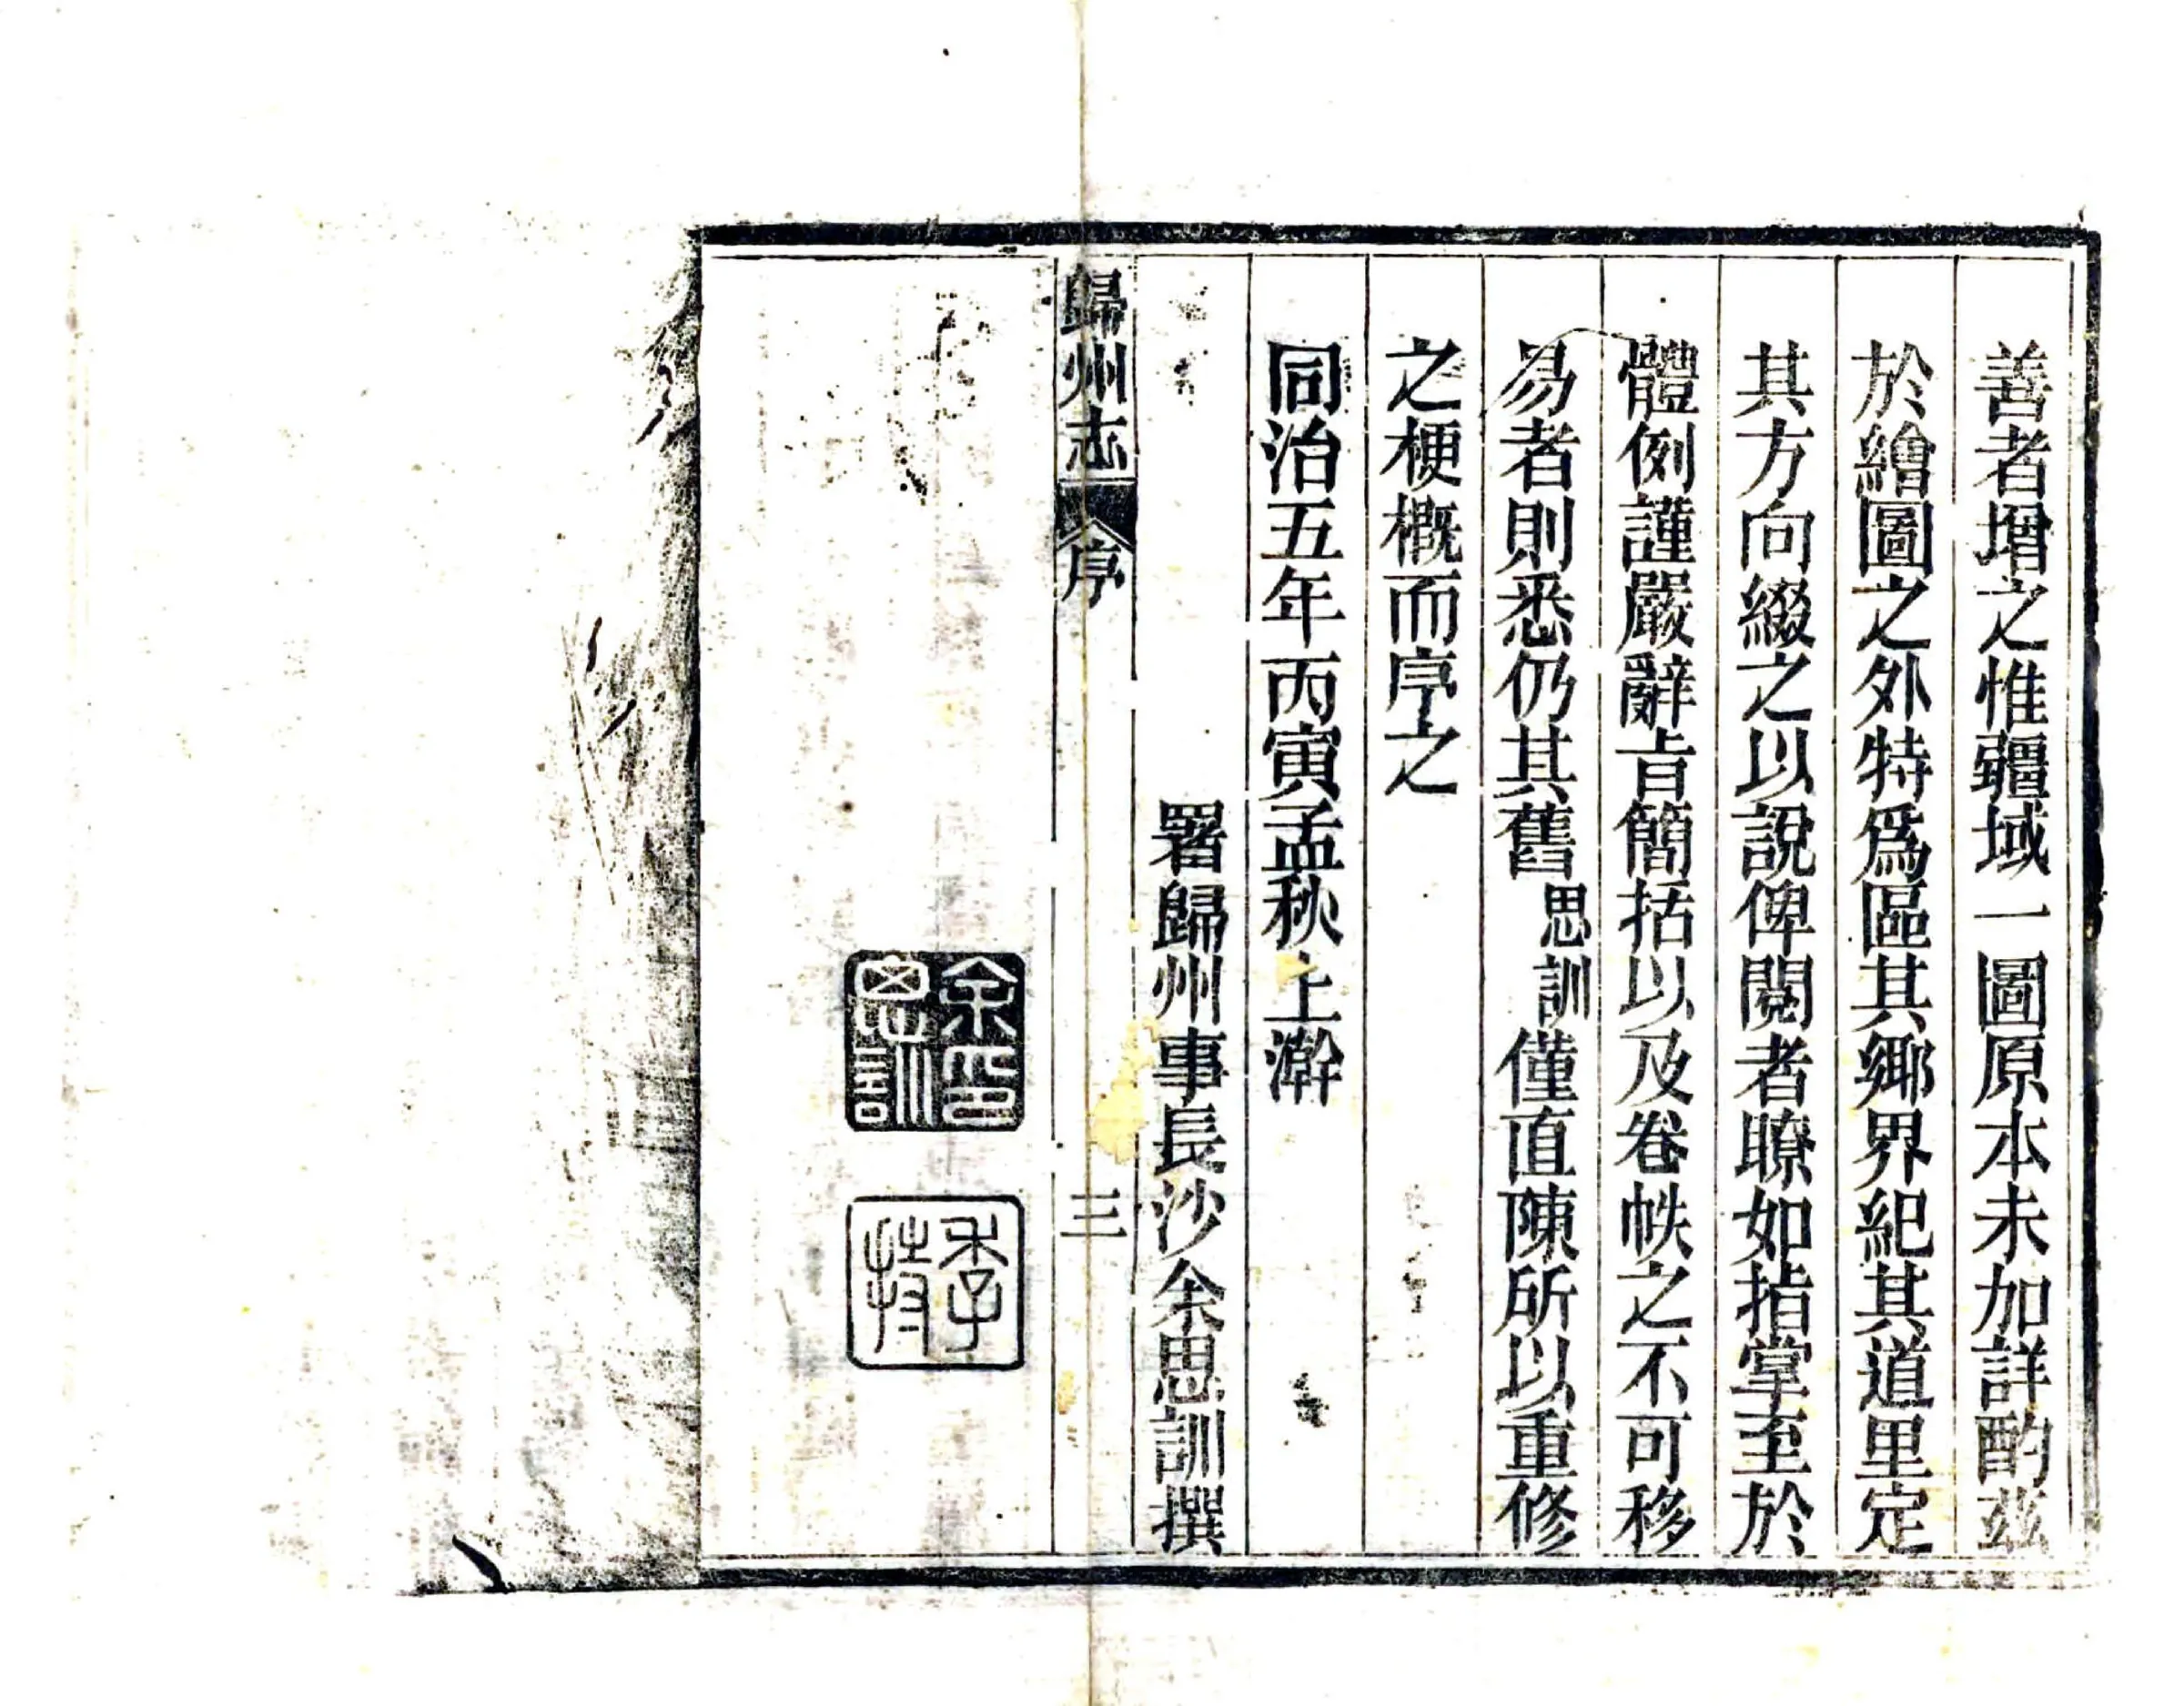 善者增之惟疆域一圖原本未加詳酌茲
於繪圖之外特爲區其鄉界紀其道里定
其方向綴之以說俾閱者瞭如指掌至於
體例謹嚴辭旨簡括以及卷帙之不可移
易者則悉仍其舊思訓僅直陳所以重修
之梗概而序之
同治五年丙寅孟秋上澣
署歸州事長沙余思訓撰
歸州志
序
三
余印思訓
季持